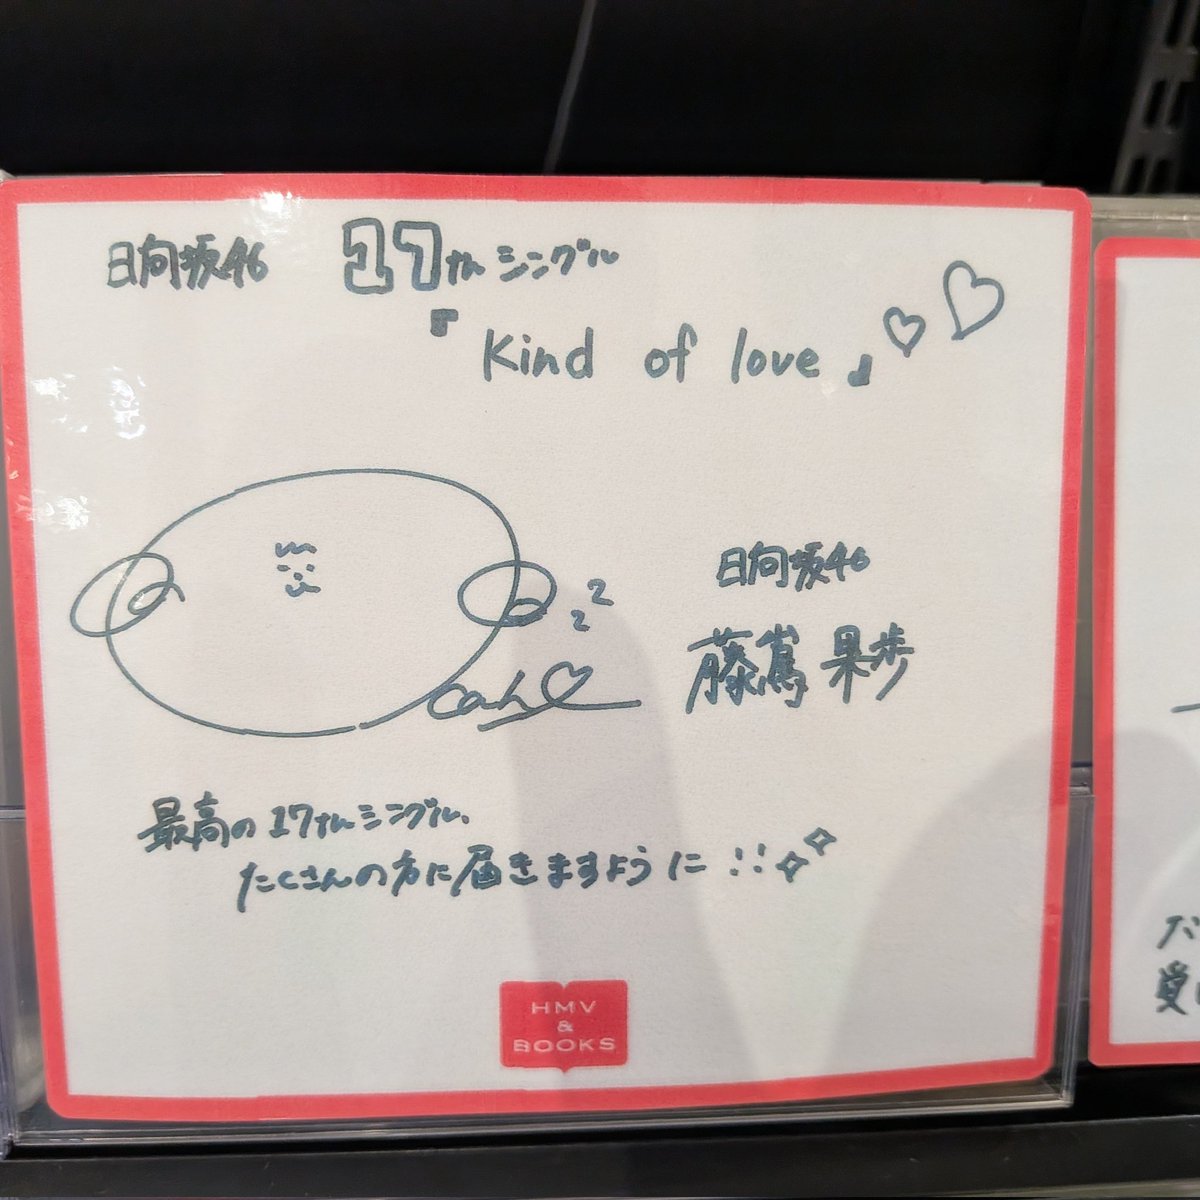 日向坂46 17thシングル
『Kind of love』♡♡
日向坂46
藤嶌 果歩
zz
最高の17thシングル、
たくさんの方に届きますように!!
HMV
&
BOOKS
だ
受